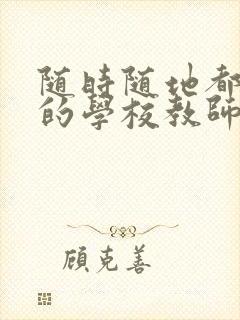 随時随地都
的學校教師
顾克善